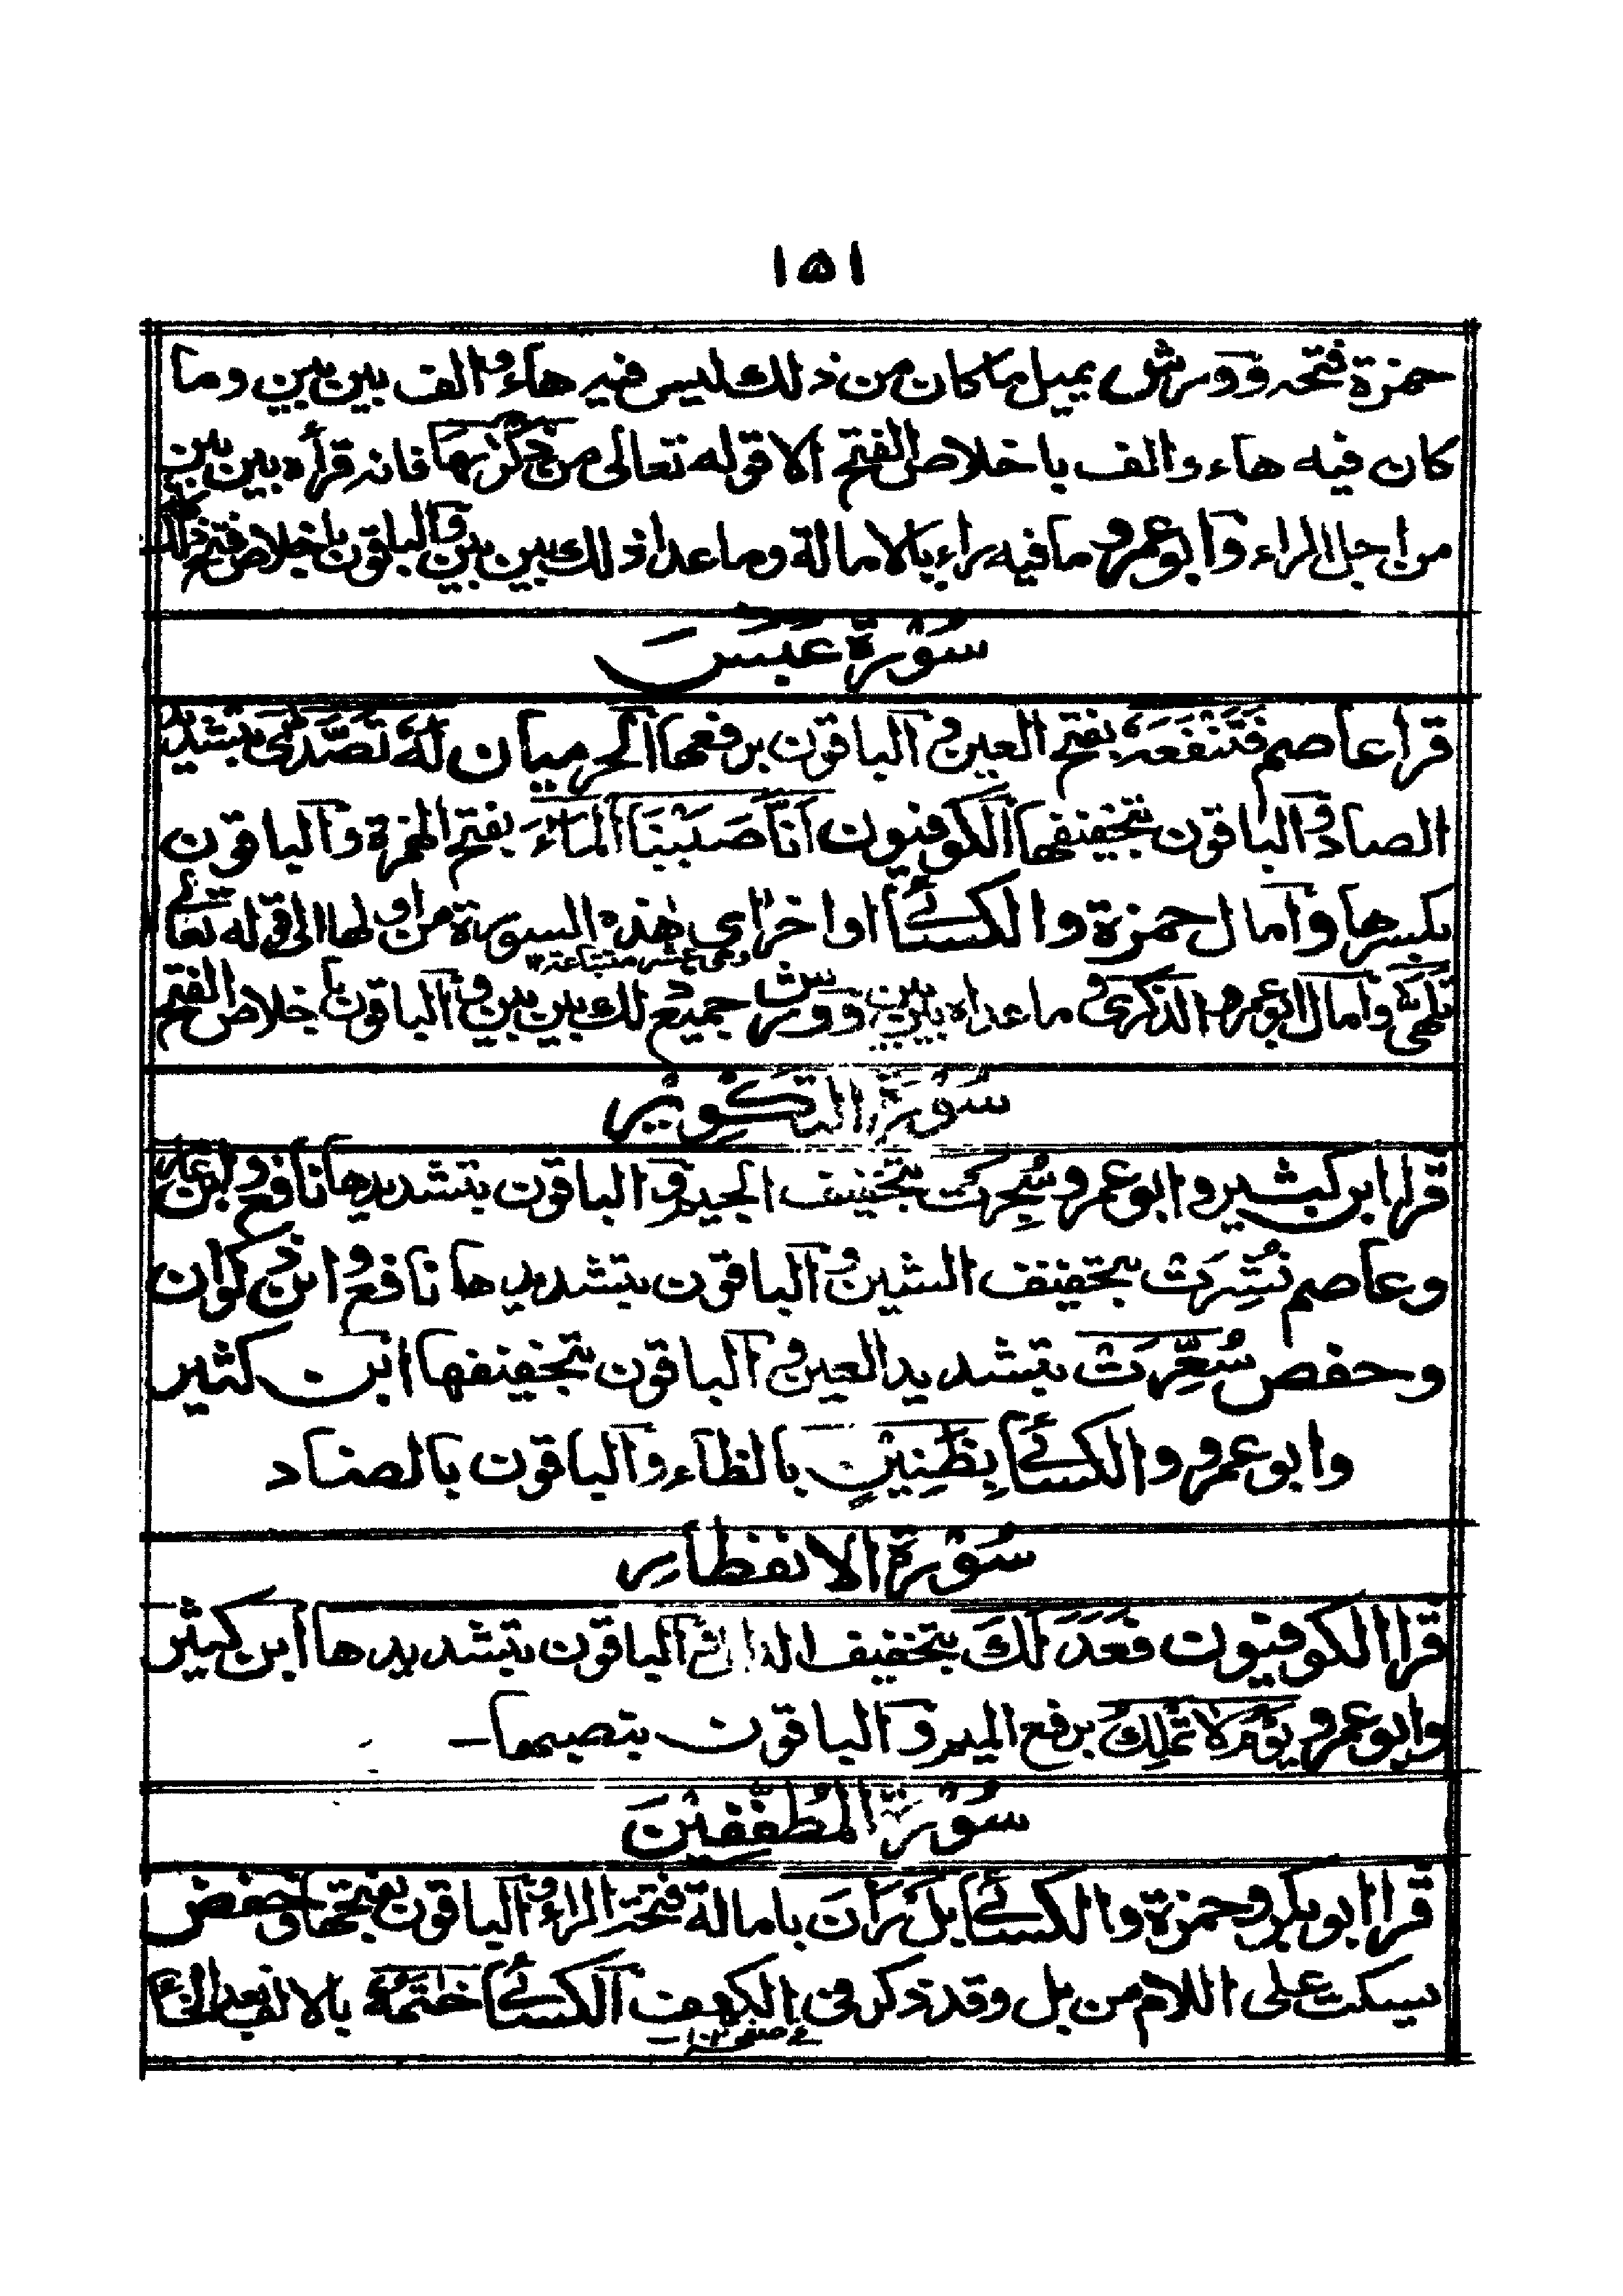 ١٥١
حمزة فتحه وورش يميل ما كان من ذلك ليس فيه هاء والف بين بين وما
كان فيه هاء والف باخلاص الفتح الا قوله تعالى من ذكرٰىها فانه قرأه بين بين
من اجل الراء وابو عمرو ما فيه راء بالامالة وما عدا ذلك بين بين والباقون باخلاص فتح ذلك كله
سُوْرَة عَبَسَ
قرا عاصم فَتَنْفَعَهُ بفتح العين والباقون برفعها الحرميان لَهُ تَصَّدّٰى بتشديد
الصاد والباقون بتخفيفها الكوفيون اَنَّا صَبَبْنَا الْمَاءَ بفتح الهمزة والباقون
بكسرها وامال حمزة والكسائى اواخر اى هذه السورة من اولها الى قوله تعالى
وهى عشر متتابعة ١٢
تَلَهّٰى وامال ابو عمرو الذكرى وما عداه بين بين وورش جميع ذلك بين بين والباقون باخلاص الفتح
سُوْرَة التكوِيْر
قرا ابن كثير وابو عمرو سُجِرَتْ بتخفيف الجيم والباقون بتشديدها نافع وابن عامر
وعاصم نُشِرَتْ بتخفيف الشين والباقون بتشديدها نافع وابن ذكوان
وحفص سُعِّرَتْ بتشديد العين والباقون بتخفيفها ابن كثير
وابو عمرو والكسائى بِظَنِيْنٍ بالظاء والباقون بالضاد
سُوْرَة الانفطارِ
قرا الكوفيون فَعَدَلَكَ بتخفيف الدال والباقون بتشديدها ابن كثير
وابو عمرو يَوْمُ لَا تَمْلِكُ برفع الميم والباقون بنصبها
سُوْرَة الْمُطَفِّفِيْنَ
قرا ابو بكر وحمزة والكسائى بَلْ رَانَ بامالة فتحة الراء والباقون بفتحها وحفص
يسكت على اللام من بل وقد ذكر فى الكهف الكسائى خٰتَمُهٗ بالالف بعد الخاء